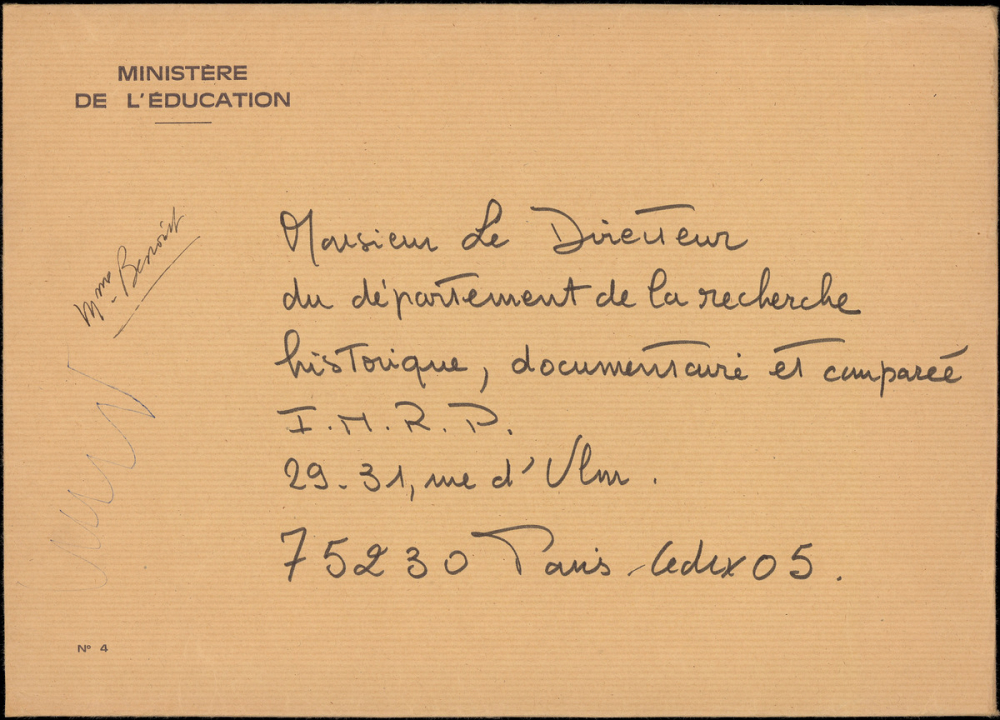 MINISTÈRE
DE L'ÉDUCATION
Mme Benoist
Monsieur Le Directeur
du département de la recherche
historique, documentaire et comparée
I.N.R.P.
29-31, rue d'Ulm.
75230 Paris Cedex 05.
N° 4